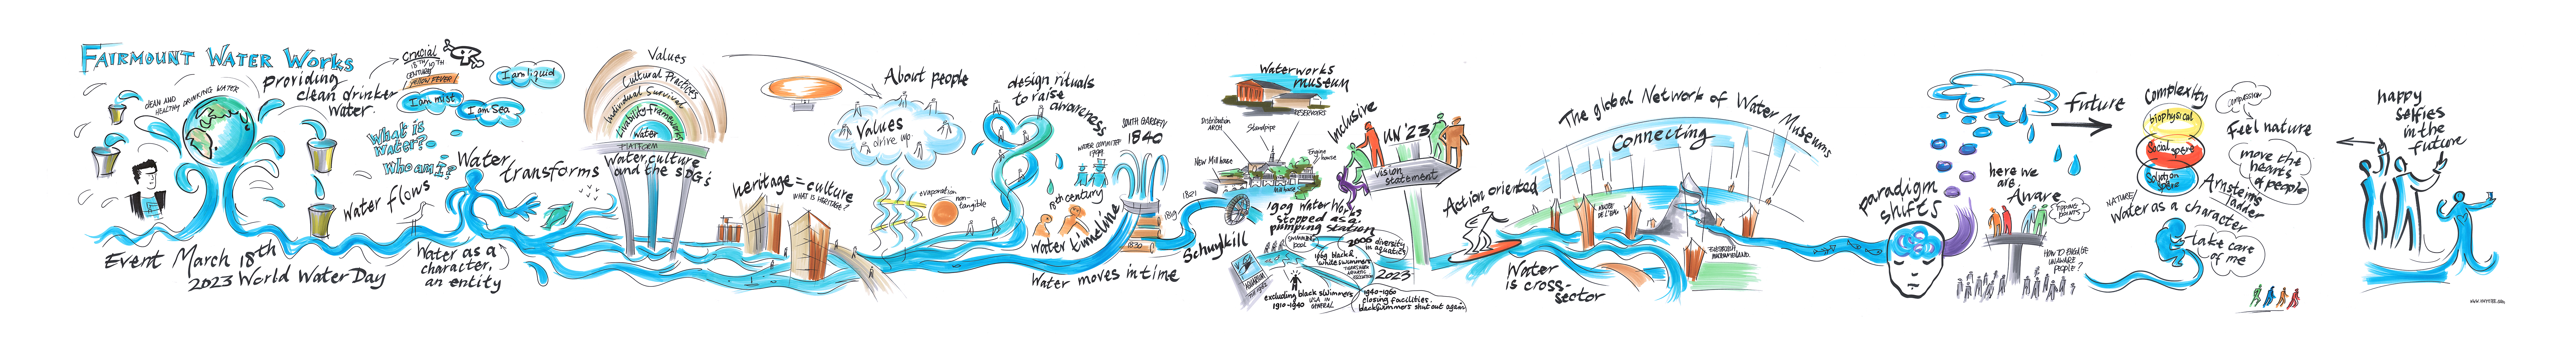 FAIRMOUNT WATER WORKS
providing
clean drinker
water.
CLEAN AND
HEALTHY DRINKING WATER
crucial
18TH/19TH
CENTURY
YELLOW FEVER!
I am liquid
I am mist
I am Sea
What is
water?
Who am I?
water flows
Event March 18th
2023 World Water Day
Water
transforms
Water as a
character,
an entity
Values
Cultural Practices
Individual Survival
Livability Frameworks
Water
PLATFORM
Water, culture
and the SDG's
heritage = culture
WHAT IS HERITAGE?
About people
Values
drive up
evaporation
non-
tangible
design rituals
to raise
awareness
WATER COMMITTEE
1799
SOUTH GARDEN
1840
18th century
water timeline
1830
1819
1821
Water moves in time
Schuylkill
Waterworks
museum
RESERVOIRS
Distribution
ARCH
Standpipe
New Mill house
Engine
house
Mill house
1909 Water Works
stopped as a
pumping station
SWIMMING
POOL
AQUARIUM
2006 diversity
in aquatics
1969 black &
white swimmers
2023
excluding black swimmers
1910-1940
USA IN
GENERAL
1940-1960
closing facilities.
black swimmers shut out again
Inclusive
UN '23
vision
statement
Action oriented
Water
is cross-
sector
The global Network of Water Museums
Connecting
MUSÉE
DE L'EAU
paradigm
shifts
here we
are.
Aware
TIPPING
POINTS
HOW TO ENGAGE
UNAWARE
PEOPLE?
Future
Complexity
biophysical
Social spere
Solution
Spere
compassion
Feel nature
move the
hearts
of people
Arnsteins
ladder
NATURE/
Water as a character
take care
of me
happy
selfies
in the
future